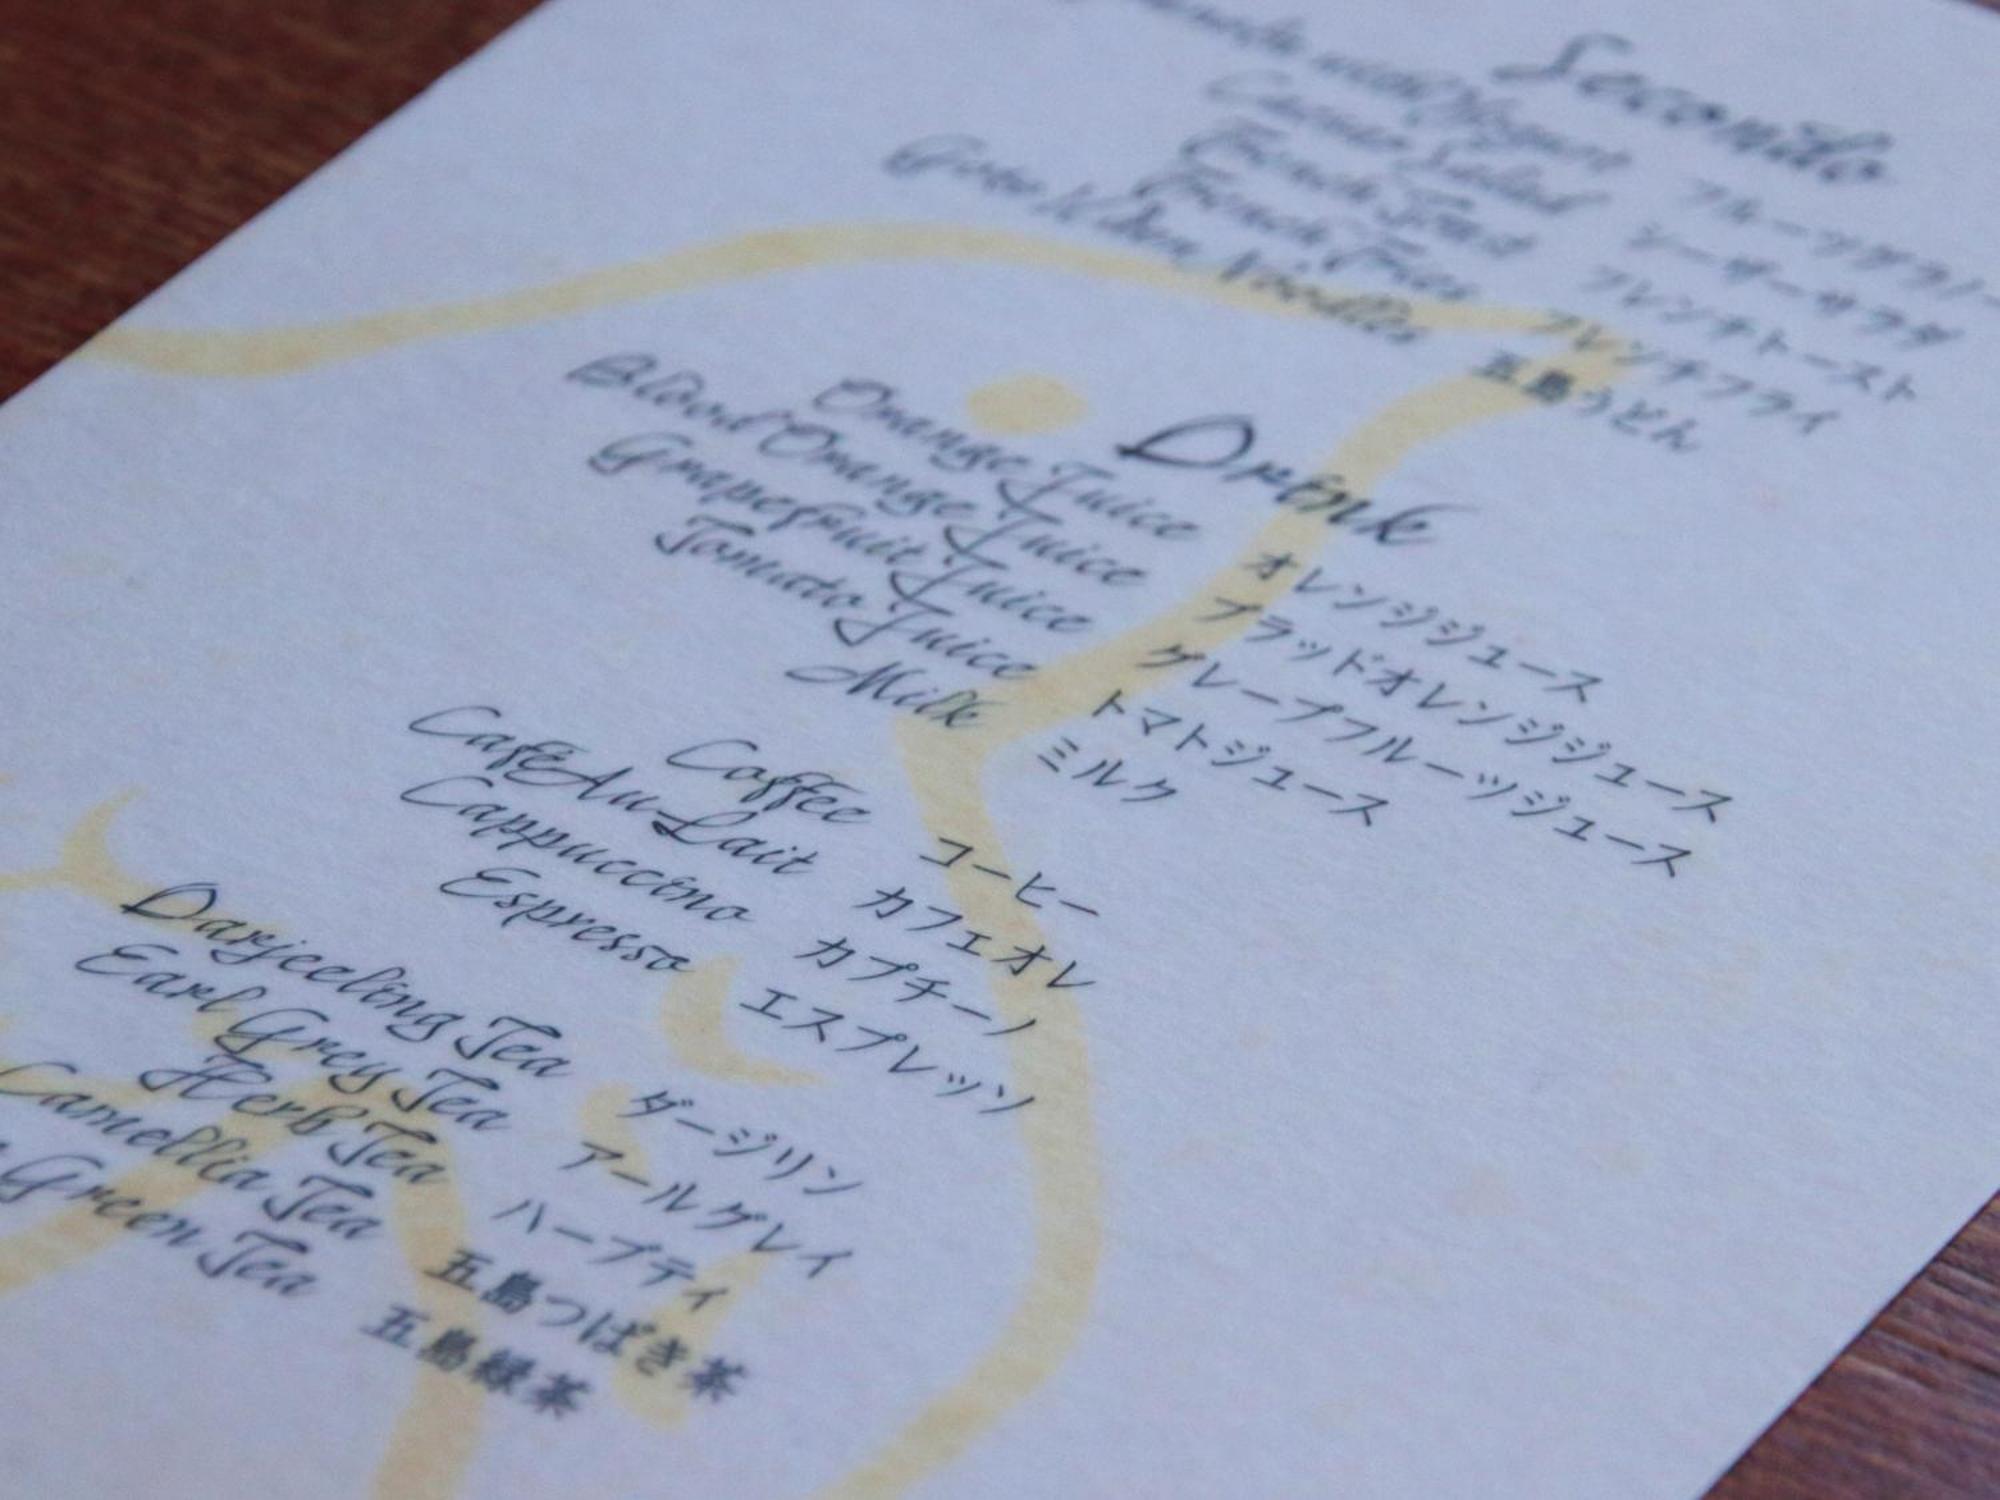 Secondo
フルーツグラノー
Caesar Salad シーザーサラダ
French Toast フレンチトースト
French Fries フレンチフライ
Goto Udon Noodles 五島うどん
Drink
Orange Juice オレンジジュース
Blood Orange Juice ブラッドオレンジジュース
Grapefruit Juice グレープフルーツジュース
Tomato Juice トマトジュース
Milk ミルク
Coffee コーヒー
Café Au Lait カフェオレ
Cappuccino カプチーノ
Espresso エスプレッソ
Darjeeling Tea ダージリン
Earl Grey Tea アールグレイ
Herb Tea ハーブティ
Camellia Tea 五島つばき茶
Green Tea 五島緑茶